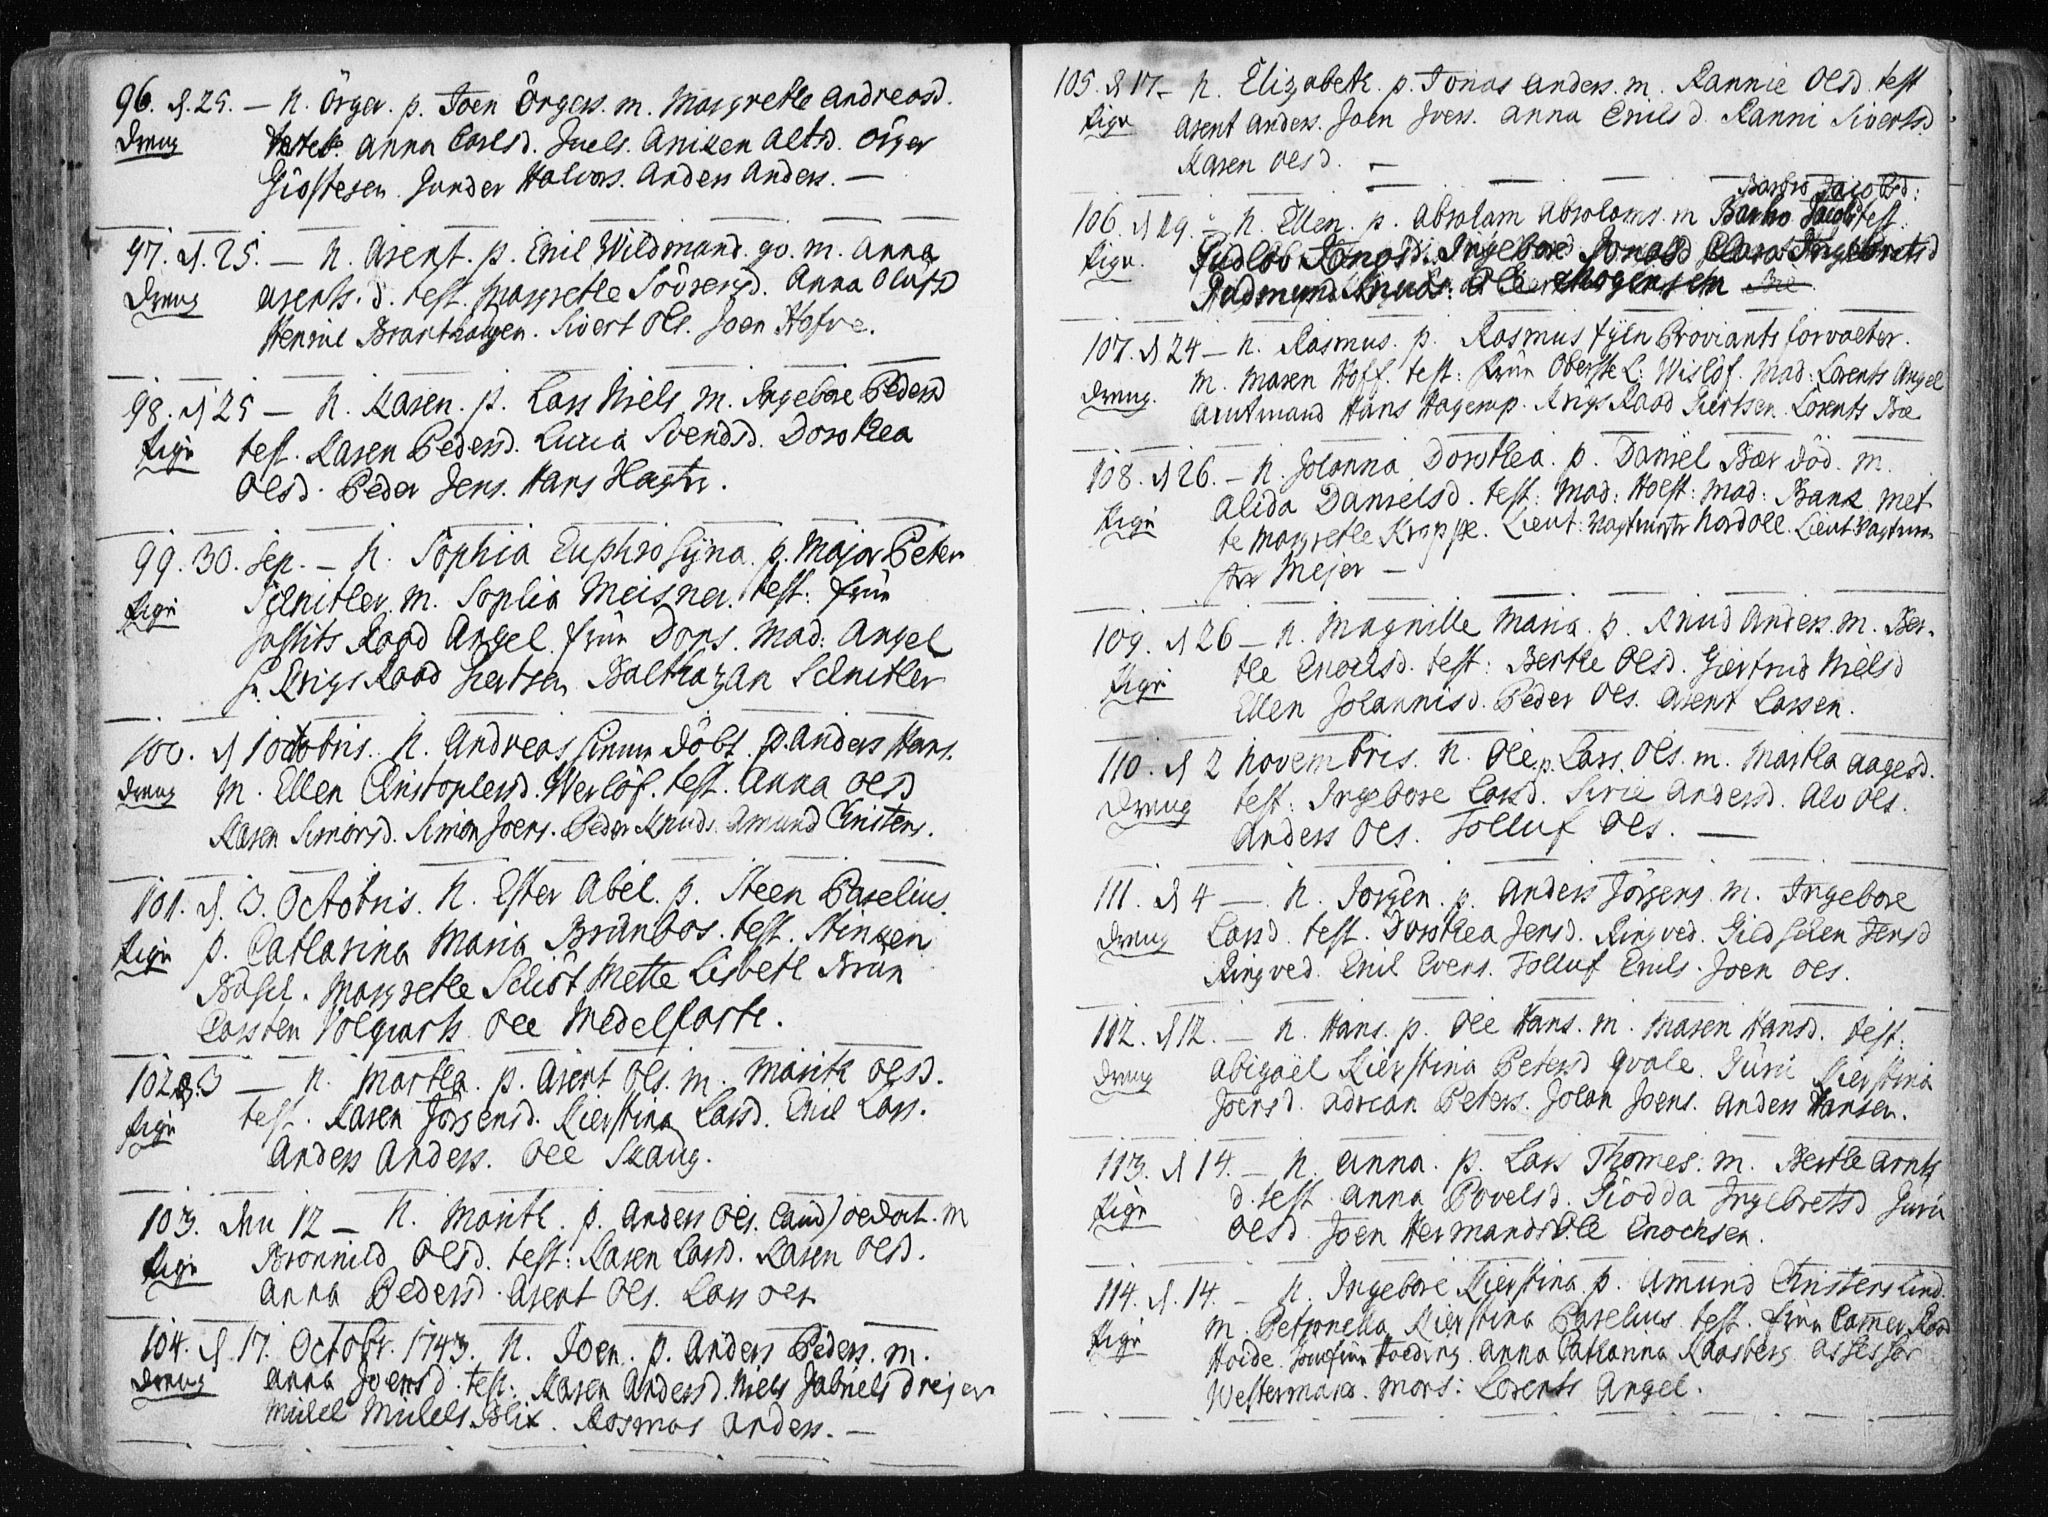 96. d. 25. — N. Örger. p. Joen Örgers. m. Margrethe Andreasd.
Dreng
Anna Carlsd. Juels. Aniken Altsd. Örger
Giostesen. Gunder Halvors. Anders Anders. —
97. d. 25. — N. Arent. p. Emil Wildmand. go. m. Anna
Dreng
Arents. d. test. Margrethe Sörrensd. Anna Olufsd
Henrich Sivert Ols. Joen Hofve.
98. d 25 — N. Karen. p. Lars Niels m. Ingebore Pedersd
Pige
test. Karen Pedersd. Lucia Svendsd. Dorothea
Olsd. Peder Jens. Hans
99. 30. Sep. — N. Sophia Euphrosÿna. p. Major Peter
Pige
Schnitler. m. Sophia Meisner. test: Frue
Justits Raad Angel. Frue Dons. Mad: Angel
Hr. Krigs Raad Giertsen Balthazar Schnitler
100. d 1 Octobris. N. Andreas döbt. p. Anders Hans.
Dreng
m. Ellen Christophersd. Werlöf. test. Anna Olsd
Karen Simonsd. Simon Joens. Peder Knuds. Amund Christens.
101. d. 3. Octobris. N. Ester Abel. p. Steen Parelius.
Pige
p. Catharina Maria Brünbos. test. Stinken
Margrethe Schiöt Mette Lisbeth Brün
Carsten Volqvarts Ole Medelfarte.
102. d. 3 — N. Martha. p. Arent Ols. m. Marith Olsd.
Pige
test. Karen Jörgensd. Kierstina Larsd. Emil Lars.
Anders Anders. Ole Skaug.
103. den 12 — N. Marith. p. Anders Ols. m
Pige
Bronnild Olsd. test: Karen Larsd. Karen Olsd.
Anna Pedersd. Arent Ols. Lars Ols
104. d. 17. Octobr. 1743. N. Joen. p. Anders Peders. m.
Dreng
Anna Joensd. test: Karen Andersd. Niels Gabriels Dreyer
Michel Michels Blix. Rasmus Anders. —
105. d 17. — N. Elizabeth. p. Jonas Anders. m. Rannie Olsd. test
Pige
Arent Anders. Joen Ivers. Anna Emilsd. Ranni Sivertsd
Karen Olsd. —
Barbro Jacobsd:
106. d 19. — N. Ellen. p. Absolam Absolams. m test
Pige.
Gudlöv Jonasd. Ingebore Jonasd Ingebretsd
Knuds. Ole Mogensen
107. d 24 — N. Rasmus. p. Rasmus Fÿen Proviantsforvalter.
Dreng.
m. Maren Hoff. test: Frue Oberste L: Wislöf. Mad: Lorents Angel
Amtmand Hans Hagerup. Krigs Raad Giertsen. Lorents
108. d 26. — N. Johanna Dorothea. p. Daniel Bær död. m.
Pige
Alida Danielsd. test: Mad: Hoest: Mad: Bank Met-
te Margrethe Kroppe. Lieut: Nordall. Lieut:
Mejer —
109. d 26 — N. Magnille Maria. p. Knud Anders. m. Ber-
Pige
the Enochsd. test: Berthe Olsd. Giertrud Nielsd
Ellen Johannisd. Peder Ols. Arent Larsen.
110. d 2 Novembris. N. Ole p. Lars Ols. m. Martha Aagesd.
Dreng
test: Ingebore Larsd. Sirie Andersd. Alv Ols.
Anders Ols. Tolluf Ols. —
111. d 4 — N. Jorgen. p. Anders Jörgens. m. Ingebore
Dreng
Larsd. test. Dorothea Jensd. Ringved. Jensd
Ringved. Emil Evens. Tolluf Emils. Joen Ols.
112. d 12. — N. Hans. p. Ole Hans. m. Maren Hansd. test:
Dreng
Abigaël Kierstina Petersd Qvale. Jürie Kierstina
Joensd. Adrian Peters. Johan Joens. Anders Hansen.
113. d 14. — N. Anna. p. Lars Thomes: m. Berthe Arnts
Pige
d. test. Anna Povelsd. Giodda Ingebretsd Jurie
Olsd. Joen Hermands Ole Enochsen.
114. d. 14. — N. Ingebore Kierstina p. Amund Christens Lind.
Pige
m. Petronella Kierstina Parelius. test. Frue Camer Raad
Hveding. Anna Catharina Kaasberg. Assessor
Westermann. Mons: Lorents Angel.